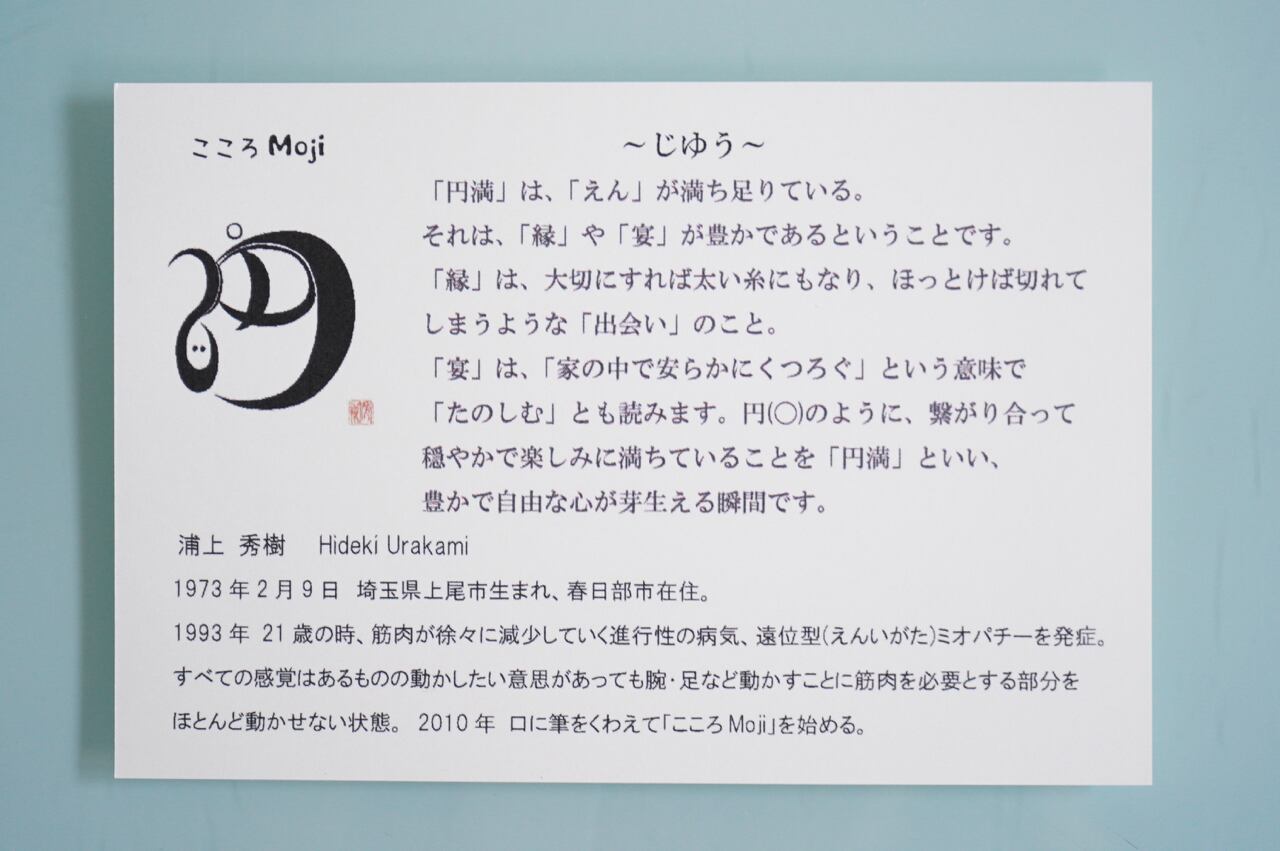 こころMoji
～じゆう～
「円満」は、「えん」が満ち足りている。
それは、「縁」や「宴」が豊かであるということです。
「縁」は、大切にすれば太い糸にもなり、ほっとけば切れて
しまうような「出会い」のこと。
「宴」は、「家の中で安らかにくつろぐ」という意味で
「たのしむ」とも読みます。円(〇)のように、繋がり合って
穏やかで楽しみに満ちていることを「円満」といい、
豊かで自由な心が芽生える瞬間です。
浦上 秀樹 Hideki Urakami
1973年2月9日 埼玉県上尾市生まれ、春日部市在住。
1993年 21歳の時、筋肉が徐々に減少していく進行性の病気、遠位型(えんいがた)ミオパチーを発症。
すべての感覚はあるものの動かしたい意思があっても腕・足など動かすことに筋肉を必要とする部分を
ほとんど動かせない状態。 2010年 口に筆をくわえて「こころMoji」を始める。